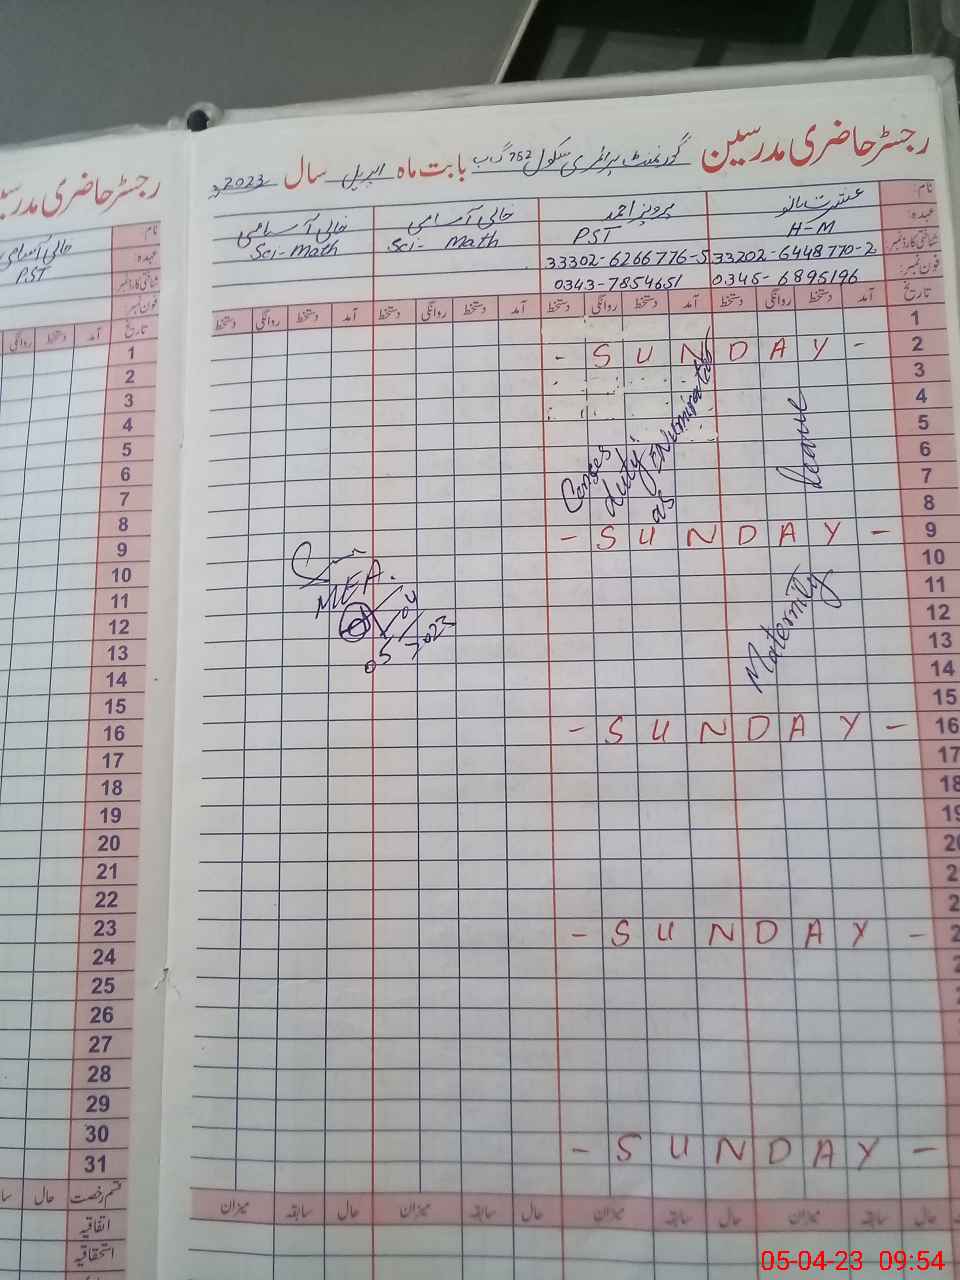 رجسٹر حاضری مدرسین گورنمنٹ پرائمری سکول 762 گ ب بابت ماہ اپریل سال 2023
نام: عشرت بانو پرویز احمد خالی آسامی خالی آسامی
عہدہ: H-M PST Sci- Math Sci- Math
شناختی کارڈ نمبر: 33202-6448770-2 33302-6266776-5
فون نمبر: 0345-6896196 0343-7854651
تاریخ آمد دستخط روانگی دستخط آمد دستخط روانگی دستخط آمد دستخط روانگی دستخط آمد دستخط روانگی دستخط
1
2 - SUNDAY -
3
4
5
6
7
8
9 - SUNDAY -
10
11
12
13
14
15
16 - SUNDAY -
17
18
19
20
2
2
2 - SUNDAY -
- SUNDAY -
Censes
duty
as ENumirator
Maternity leave
MEA.
05/04/2023
حال سابقہ میزان حال سابقہ میزان حال سابقہ میزان حال سابقہ میزان
رجسٹر حاضری مدرسین
نام خالی آسامی
عہدہ PST
شناختی کارڈ نمبر
فون نمبر
تاریخ آمد دستخط روانگی
1
2
3
4
5
6
7
8
9
10
11
12
13
14
15
16
17
18
19
20
21
22
23
24
25
26
27
28
29
30
31
قسم رخصت حال
اتفاقیہ
استحقاقیہ
05-04-23 09:54